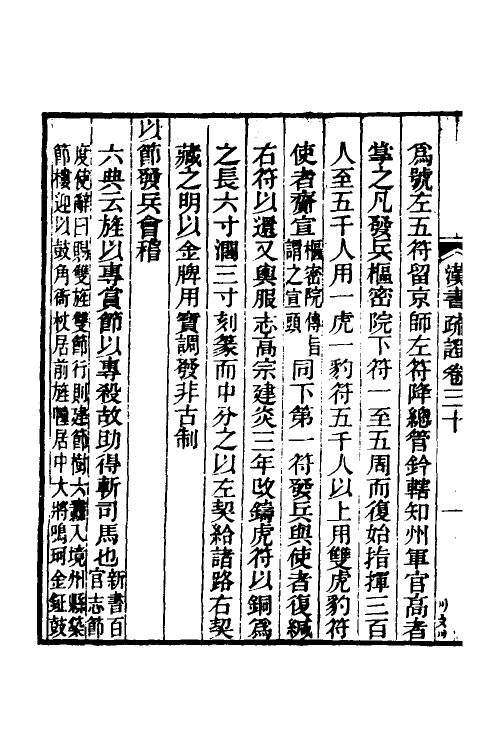 漢書疏證卷三十
一
爲號左五符留京師左符降總管鈐轄知州軍官高者
掌之凡發兵樞密院下符一至五周而復始指揮三百
人至五千人用一虎一豹符五千人以上用雙虎豹符
使者齎宣樞密院傳旨謂之宣頭同下第一符發兵與使者復緘
右符以還又輿服志高宗建炎三年改鑄虎符以銅爲
之長六寸濶三寸刻篆而中分之以左契給諸路右契
藏之明以金牌用寶調發非古制
以節發兵會稽
六典云旌以專賞節以專殺故助得斬司馬也新書百官志節
度使辭日賜雙旌雙節行則建節樹六纛入境州縣築
節樓迎以鼓角衙杖居前旌幢居中大將鳴珂金鉦鼓